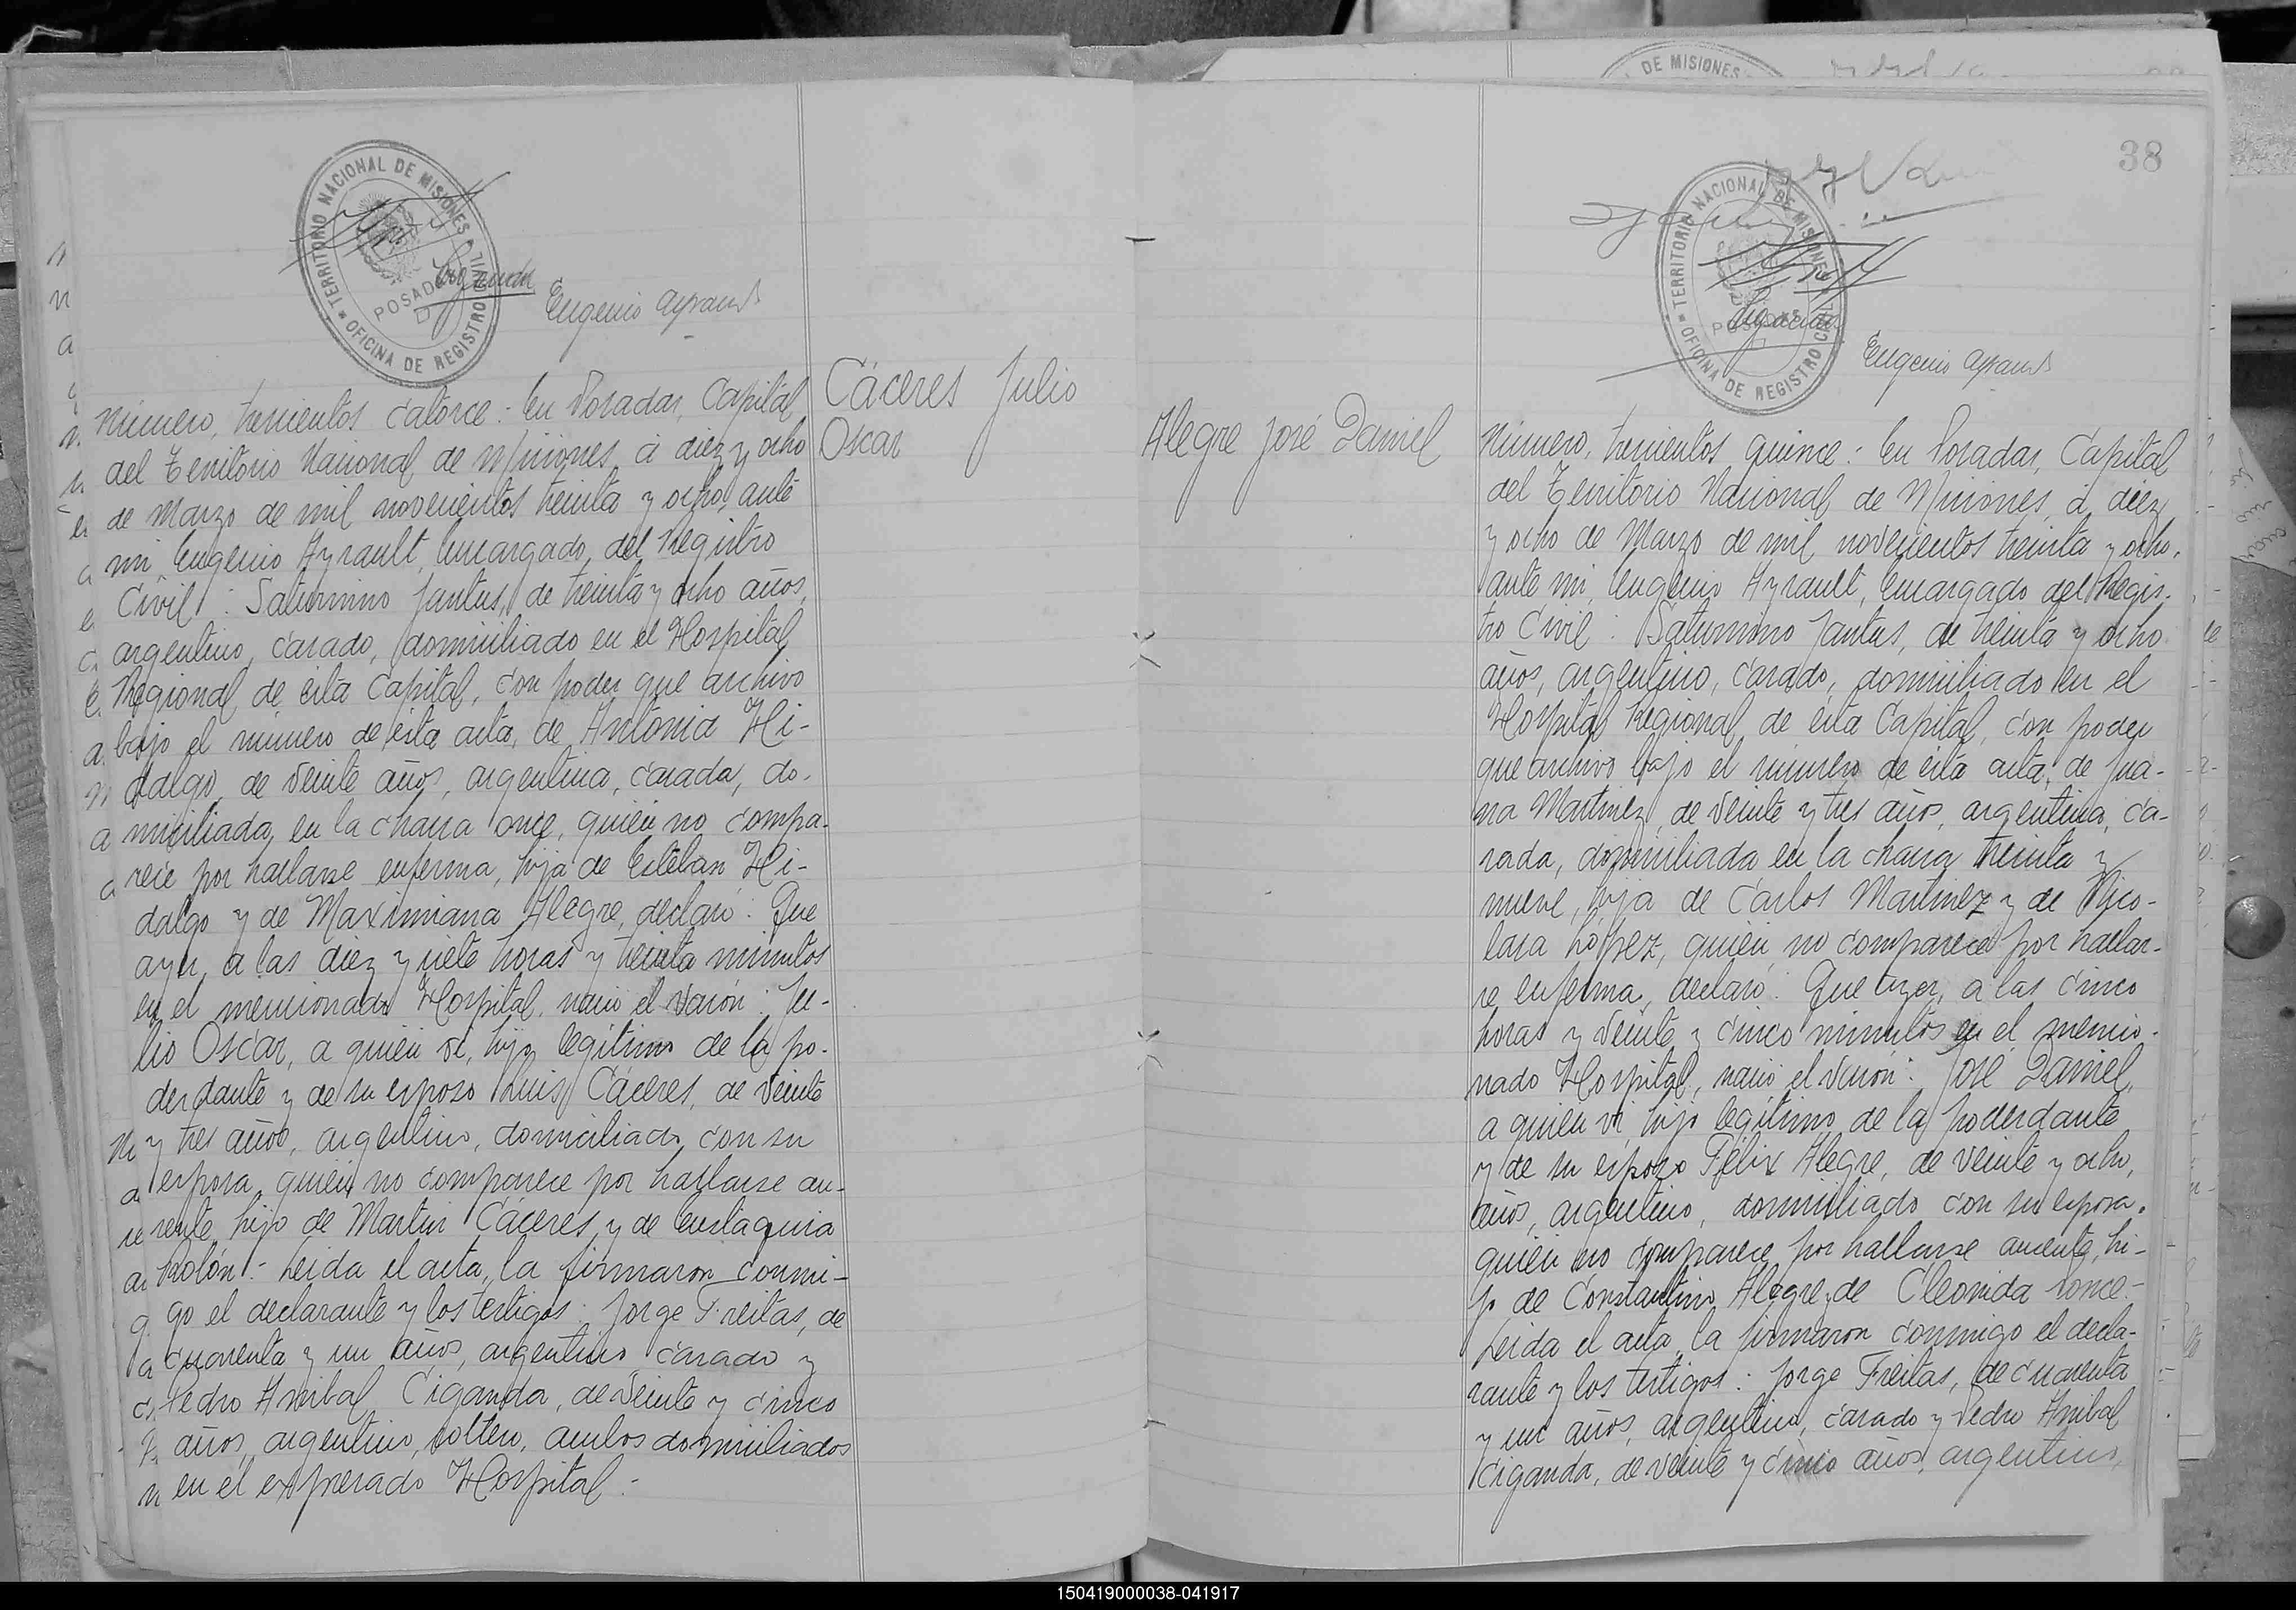 TERRITORIO NACIONAL DE MISIONES
POSADAS
OFICINA DE REGISTRO CIVIL
Eugenio Ayrault
Cáceres Julio
Oscar
Número, trescientos catorce: En Posadas, Capital
del Territorio Nacional de Misiones, á diez y ocho
de Marzo de mil novecientos treinta y ocho, ante
mi, Eugenio Ayrault, Encargado del Registro
Civil: Saturnino Jantus, de treinta y ocho años,
argentino, casado, domiciliado en el Hospital
Regional de ésta Capital, con poder que archivo
bajo el número de ésta acta, de Antonia Hi-
dalgo, de veinte años, argentina, casada, do-
miciliada en la chacra once, quién no compa-
rece por hallarse enferma, hija de Esteban Hi-
dalgo y de Maximiana Alegre, declaró: Que
ayer, a las diez y siete horas y treinta minutos
en el mencionado Hospital, nació el varón: Ju-
lio Oscar, a quién ví, hijo legítimo de la po-
derdante y de su esposo Luis Cáceres, de veinte
y tres años, argentino, domiciliado con su
esposa, quién no comparece por hallarse au-
sente, hijo de Martin Cáceres y de Eustaquia
Rolón.- Leida el acta, la firmaron conmi-
go el declarante y los testigos: Jorge Freitas, de
cuarenta y un años, argentino casado y
Pedro Anibal Ciganda, de veinte y cinco
años, argentino, soltero, ambos domiciliados
en el expresado Hospital.-
DE MISIONES
38
TERRITORIO NACIONAL DE MISIONES
POSADAS
OFICINA DE REGISTRO CIVIL
Eugenio Ayrault
Alegre José Daniel
Número, trescientos quince: En Posadas, Capital
del Territorio Nacional de Misiones, á diez
y ocho de Marzo de mil novecientos treinta y ocho,
ante mi, Eugenio Ayrault, Encargado del Regis-
tro Civil: Saturnino Jantus, de treinta y ocho
años, argentino, casado, domiciliado en el
Hospital Regional de ésta Capital, con poder
que archivo bajo el número de ésta acta, de Jua-
na Martinez, de veinte y tres años, argentina, ca-
sada, domiciliada en la chacra treinta y
nueve, hija de Carlos Martinez y de Nico-
lasa López, quién no comparece por hallar-
se enferma, declaró: Que ayer, a las cinco
horas y veinte y cinco minutos en el mencio-
nado Hospital, nació el varón: José Daniel,
a quién ví, hijo legítimo de la poderdante
y de su esposo Félix Alegre, de veinte y ocho
años, argentino, domiciliado con su esposa,
quién no comparece por hallarse ausente, hi-
jo de Constantino Alegre y de Cleonida Ponce.-
Leida el acta, la firmaron conmigo el decla-
rante y los testigos: Jorge Freitas, de cuarenta
y un años, argentino, casado y Pedro Anibal
Ciganda, de veinte y cinco años, argentino,
150419000038-041917